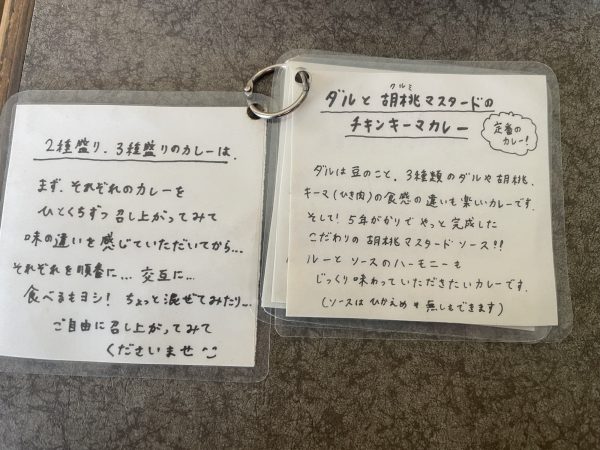 2種盛り、3種盛りのカレーは、
まず、それぞれのカレーを
ひとくちずつ召し上がってみて
味の違いを感じていただいてから…
それぞれを順番に… 交互に…
食べるもヨシ! ちょっと混ぜてみたり…
ご自由に召し上がってみて
くださいませ
クルミ
ダルと胡桃マスタードの
チキンキーマカレー
定番の
カレー!
ダルは豆のこと。3種類のダルや胡桃、
キーマ(ひき肉)の食感の違いも楽しいカレーです。
そして! 5年がかりでやっと完成した
こだわりの胡桃マスタードソース!!
ルーとソースのハーモニーも
じっくり味わっていただきたいカレーです。
(ソースはひかえめ 無しもできます)